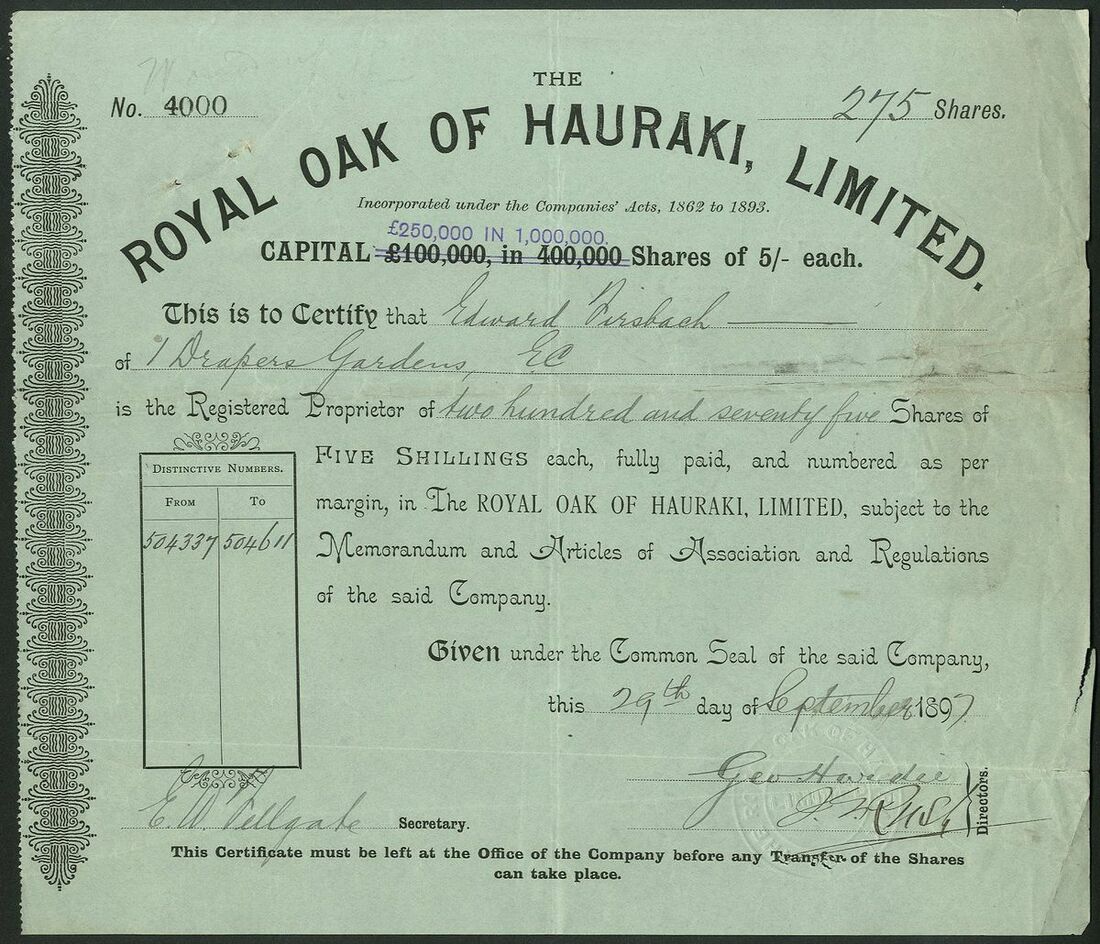 THE
No. 4000
275 Shares.
ROYAL OAK OF HAURAKI, LIMITED.
Incorporated under the Companies' Acts, 1862 to 1893.
£250,000 IN 1,000,000.
CAPITAL £100,000, in 400,000 Shares of 5/- each.
This is to Certify that Edward Pirsbach
of 1 Drapers Gardens, EC
is the Registered Proprietor of two hundred and seventy five Shares of
FIVE SHILLINGS each, fully paid, and numbered as per
margin, in The ROYAL OAK OF HAURAKI, LIMITED, subject to the
Memorandum and Articles of Association and Regulations
of the said Company.
DISTINCTIVE NUMBERS.
FROM TO
504337 504611
Given under the Common Seal of the said Company,
this 29th day of September 1897
Directors.
Secretary.
This Certificate must be left at the Office of the Company before any Transfer of the Shares
can take place.